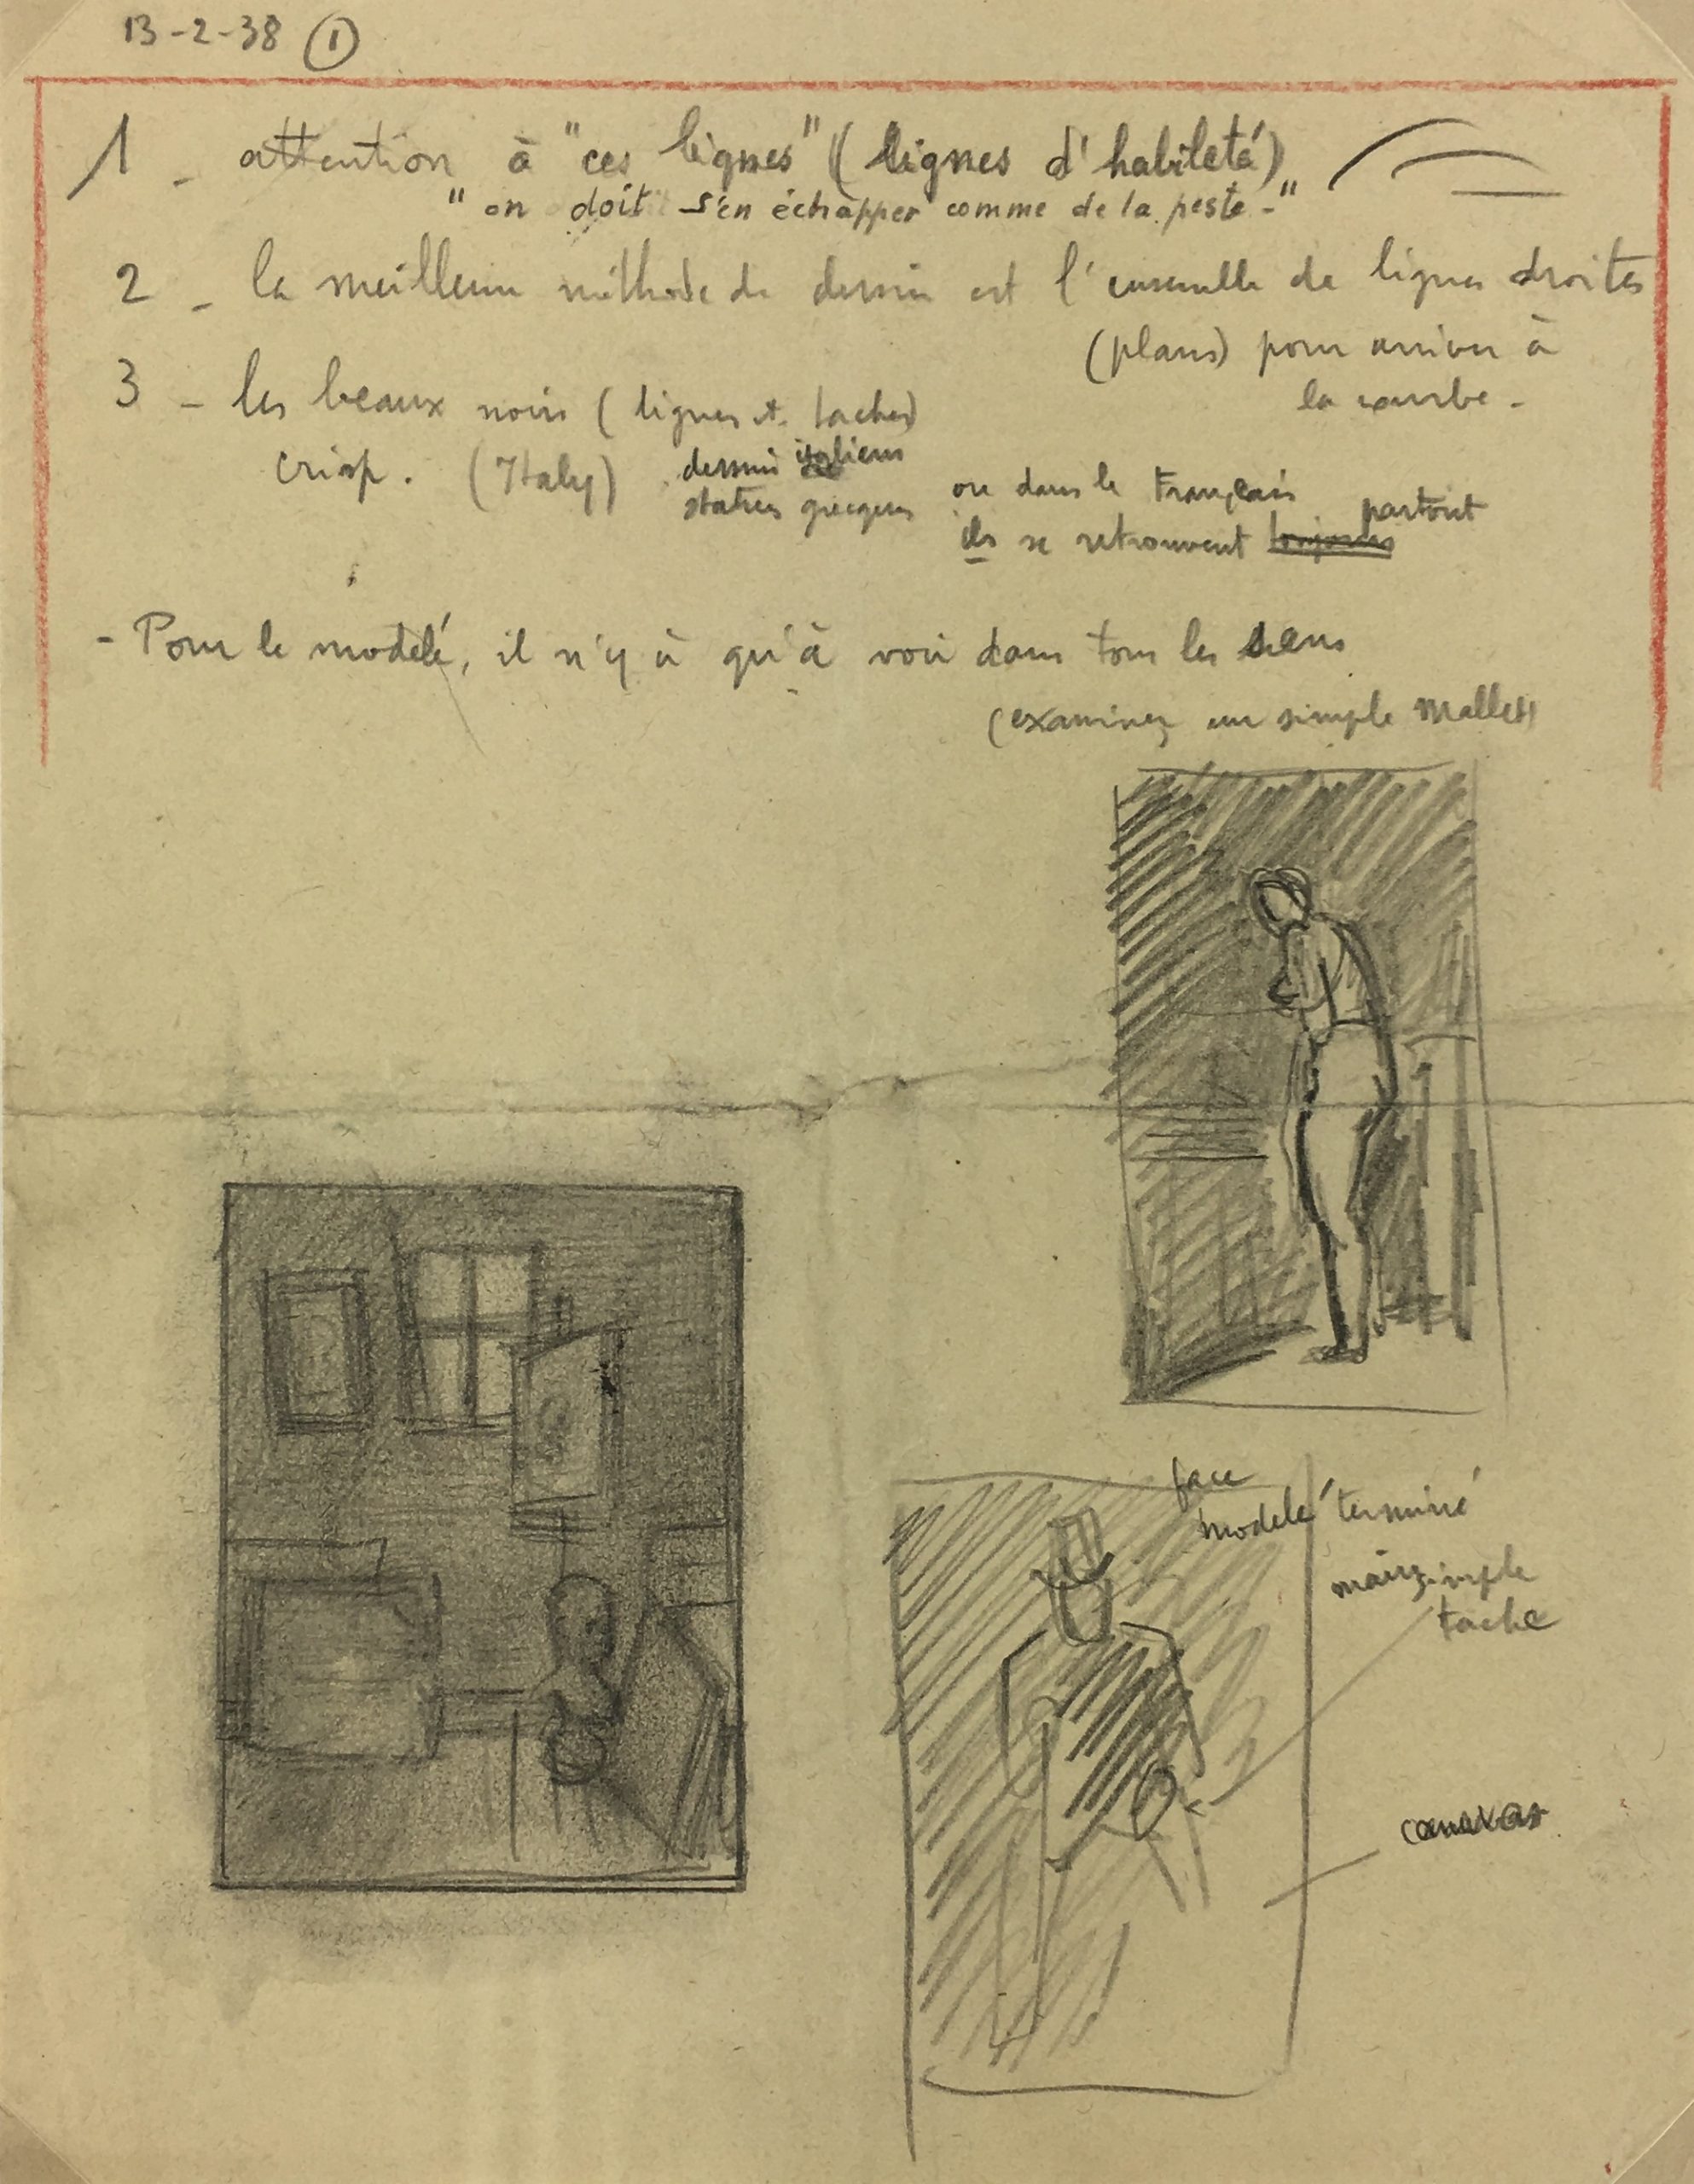 13-2-38 ①
1 - attention à "ces lignes" (lignes d'habileté)
"on doit s'en échapper comme de la peste-"
2 - la meilleure méthode de dessin est l'ensemble de lignes droites
(plans) pour arriver à
la courbe -
3 - les beaux noirs (lignes et taches)
crisp. (Italy) dessin italiens
statues grecques
ou dans le Français
ils se retrouvent toujours partout
- Pour le modelé, il n'y à qu'à voir dans tous les sens
(examinez un simple mallet)
face
modelé terminé
main simple
tache
canevas